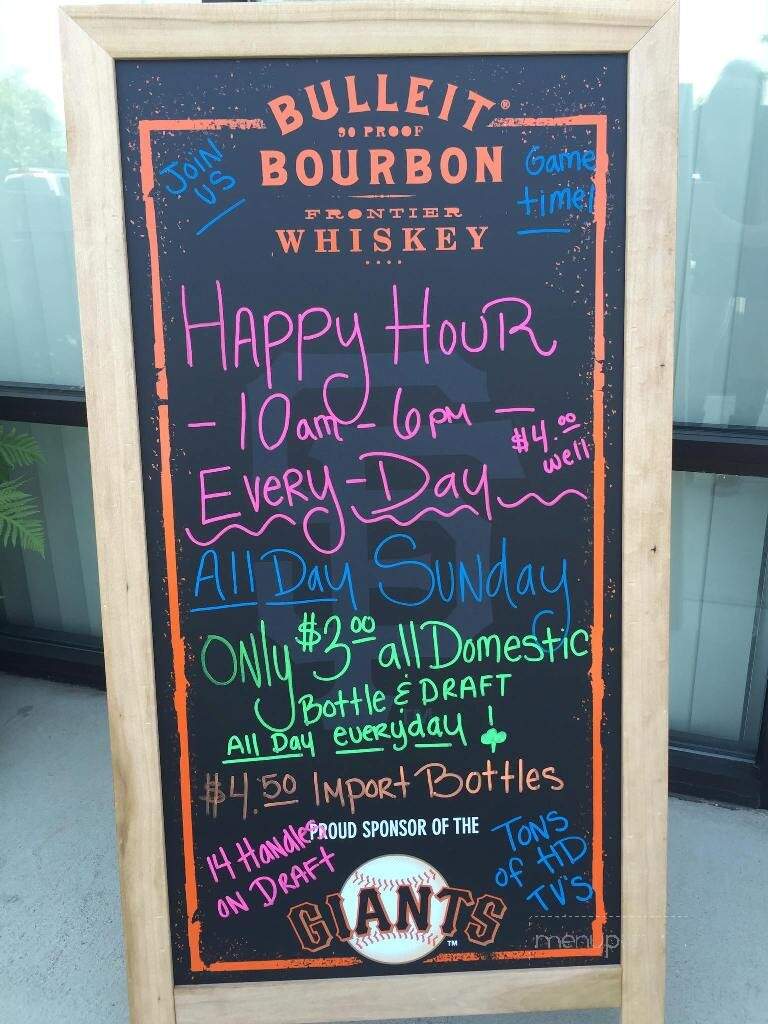 BULLEIT®
90 PROOF
BOURBON
FRONTIER
WHISKEY
JOIN
US
Game
time!
HAPPY HOUR
- 10am - 6pm -
$4.00
well
EVERY-DAY
All Day SUNday
ONly $3.00 all Domestic
Bottle & DRAFT
All Day everyday!
$4.50 IMPORT Bottles
14 Handles
ON DRAFT
PROUD SPONSOR OF THE
GIANTS
TM
TONS
of HD
TV'S
SF
menup